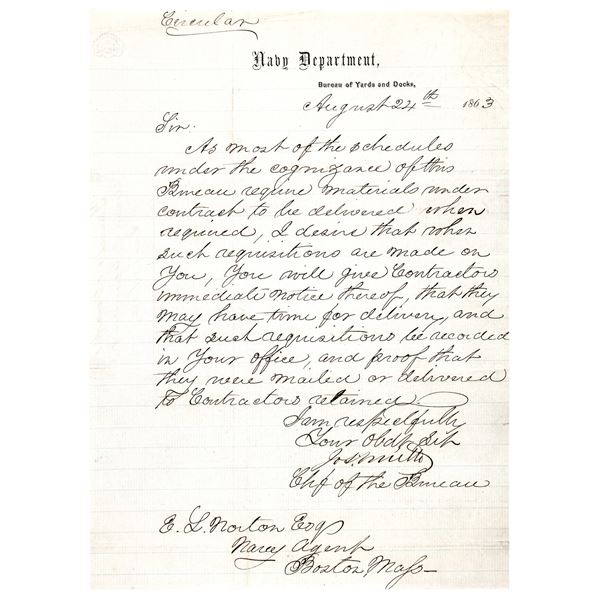 Circular
Navy Department,
Bureau of Yards and Docks,
August 24th 1863
Sir:
As most of the schedules
under the cognizance of this
Bureau require materials under
contract to be delivered when
required, I desire that when
such requisitions are made on
You, You will give Contractors
immediate notice thereof, that they
may have time for delivery, and
that such requisitions be recorded
in Your office, and proof that
they were mailed or delivered
to Contractors retained
I am respectfully
Your Obdt Svt
Jos. Smith
Chf of the Bureau
E. L. Norton Esq
Navy Agent
Boston Mass